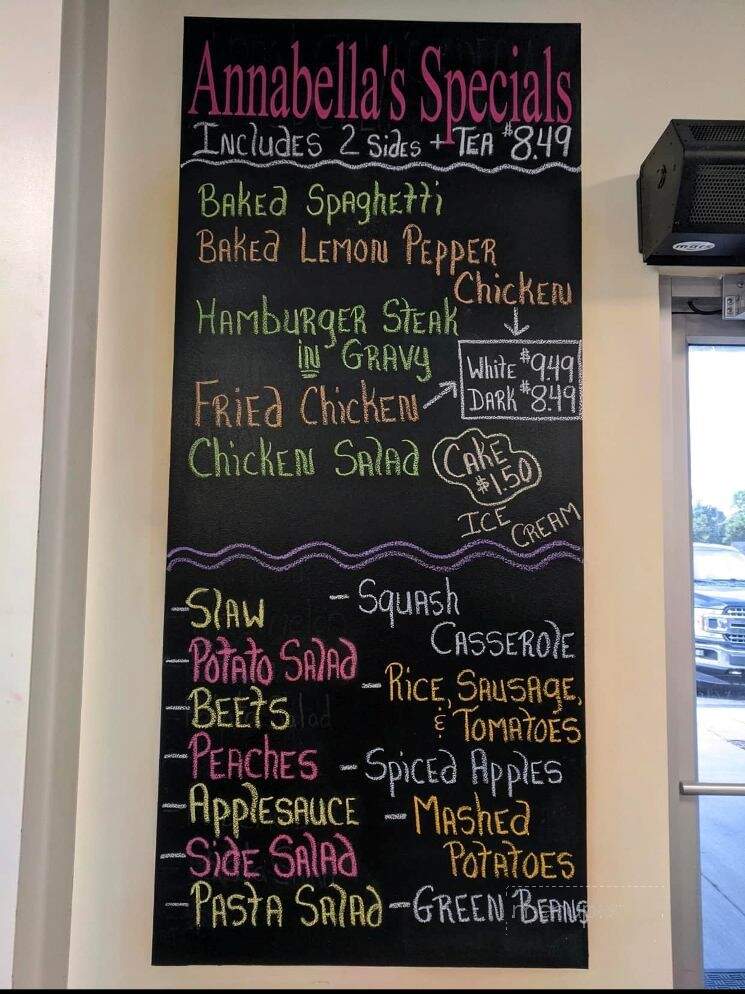 Annabella's Specials
Includes 2 Sides + Tea $8.49
Baked Spaghetti
Baked Lemon Pepper
Chicken
Hamburger Steak
in Gravy
White $9.49
Dark $8.49
Fried Chicken
Chicken Salad
Cake
$1.50
Ice Cream
- Slaw
- Potato Salad
- Beets
- Peaches
- Applesauce
- Side Salad
- Pasta Salad
- Squash
Casserole
- Rice, Sausage,
& Tomatoes
- Spiced Apples
- Mashed
Potatoes
- Green Beans
mars